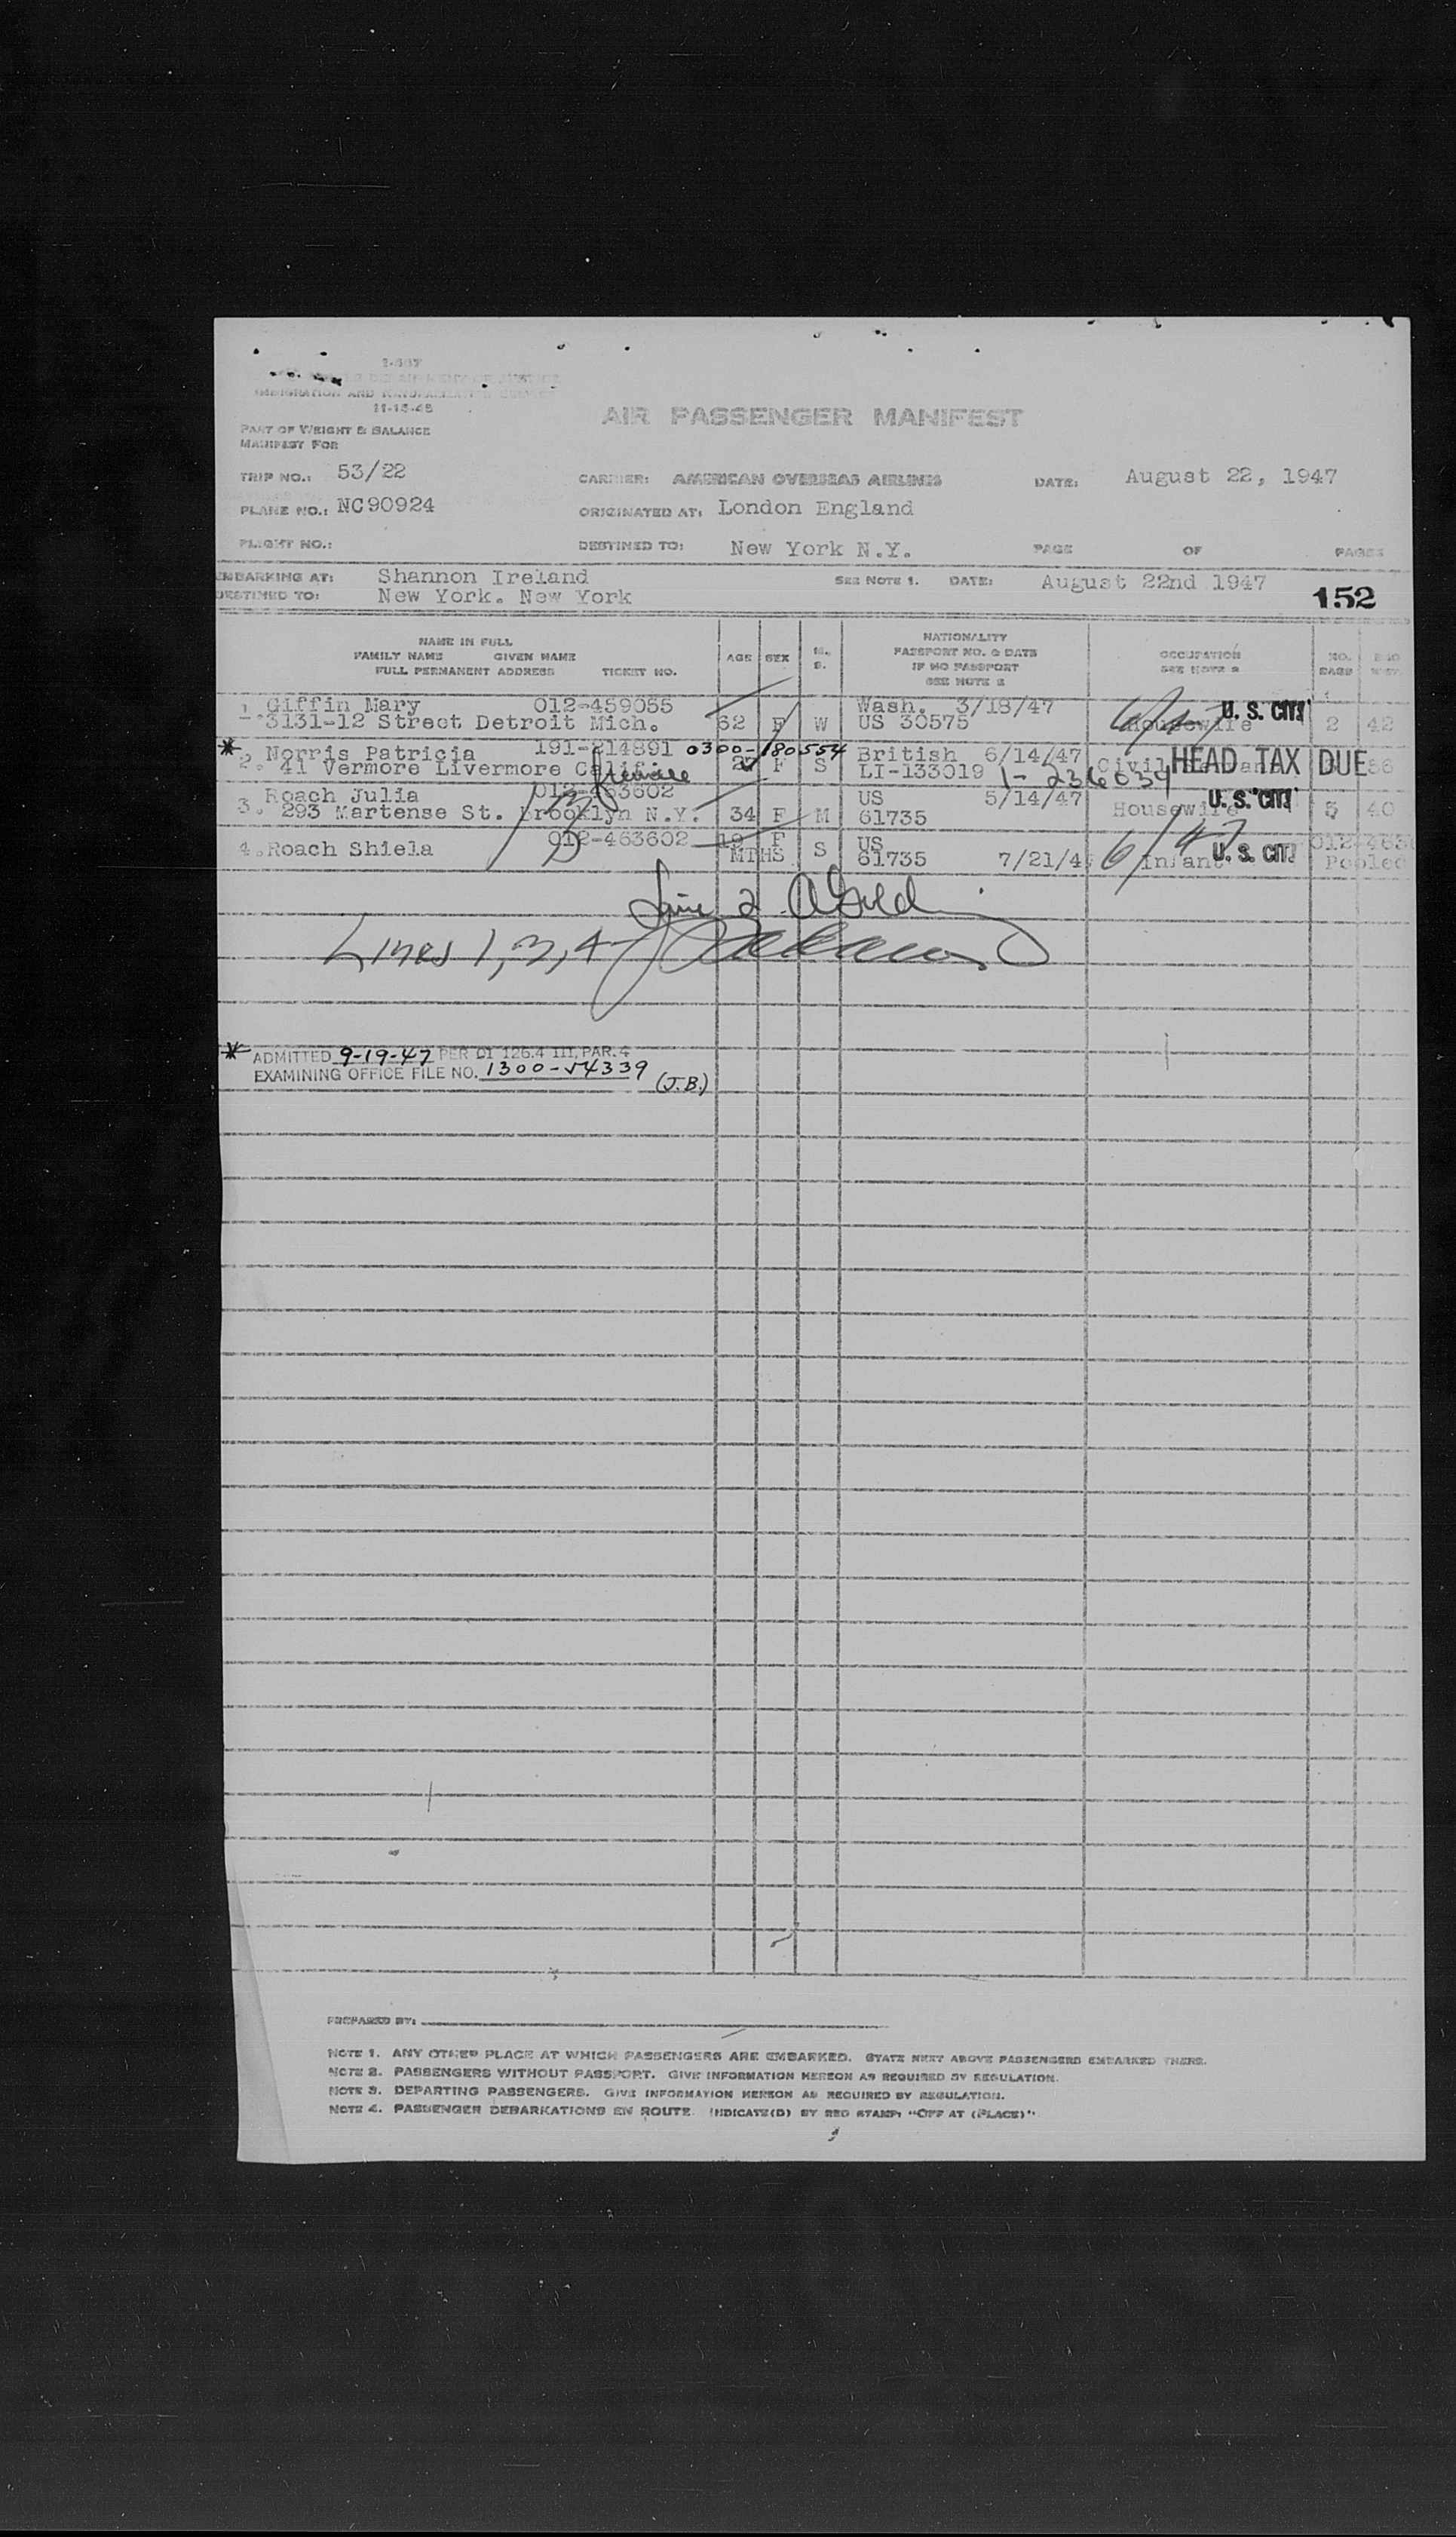 I-487
IMMIGRATION AND NATURALIZATION SERVICE
11-15-45
AIR PASSENGER MANIFEST
PART OF WEIGHT & BALANCE
MANIFEST FOR
TRIP NO.: 53/22 CARRIER: AMERICAN OVERSEAS AIRLINES DATE: August 22, 1947
PLANE NO.: NC90924 ORIGINATED AT: London England
FLIGHT NO.: DESTINED TO: New York N.Y. PAGE OF PAGES
EMBARKING AT: Shannon Ireland SEE NOTE 1. DATE: August 22nd 1947
DESTINED TO: New York. New York 152
NAME IN FULL
FAMILY NAME GIVEN NAME
FULL PERMANENT ADDRESS TICKET NO.
AGE SEX M. S.
NATIONALITY
PASSPORT NO. & DATE
IF NO PASSPORT
SEE NOTE 2
OCCUPATION
SEE NOTE 2
NO. BAGS
1. Giffin Mary 012-459055 Wash. 3/18/47 U. S. CIT.
3131-12 Street Detroit Mich. 62 F W US 30575 Housewife 2 42
* 2. Norris Patricia 191-214891 0300-180554 British 6/14/47 HEAD TAX DUE
41 Vermore Livermore Calif. 27 F S LI-133019 1-236034 Civil
3. Roach Julia 012-463602 US 5/14/47 U. S. CIT.
293 Martense St. Brooklyn N.Y. 34 F M 61735 Housewife 3 40
4. Roach Shiela 012-463602 19 MTHS F S US 61735 7/21/4 Infant U. S. CIT. Pooled
Line 2
Lines 1, 3, 4
* ADMITTED 9-19-47 PER OI 126.4 III, PAR. 4
EXAMINING OFFICE FILE NO. 1300-54339 (J.B.)
PREPARED BY:
NOTE 1. ANY OTHER PLACE AT WHICH PASSENGERS ARE EMBARKED. STATE NEXT ABOVE PASSENGERS EMBARKED THERE.
NOTE 2. PASSENGERS WITHOUT PASSPORT. GIVE INFORMATION HEREON AS REQUIRED BY REGULATION.
NOTE 3. DEPARTING PASSENGERS. GIVE INFORMATION HEREON AS REQUIRED BY REGULATION.
NOTE 4. PASSENGER DEBARKATIONS EN ROUTE. INDICATE(D) BY RED STAMP: "OFF AT (PLACE)"